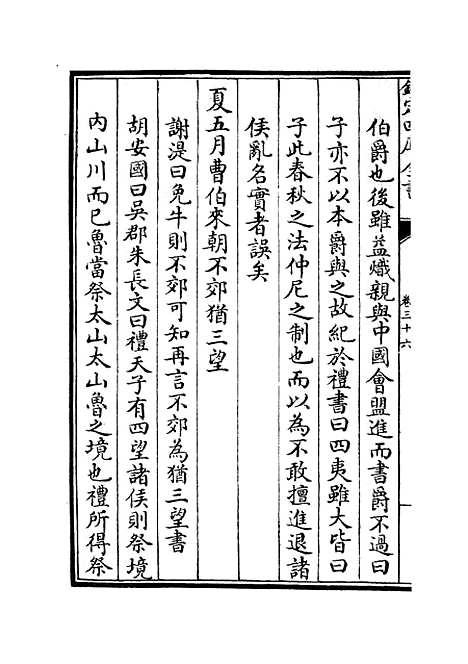 欽定四庫全書
卷三十六
伯爵也後雖益熾親與中國會盟進而書爵不過曰
子亦不以本爵與之故紀於禮書曰四夷雖大皆曰
子此春秋之法仲尼之制也而以為不敢擅進退諸
侯亂名實者誤矣
夏五月曹伯來朝不郊猶三望
謝湜曰免牛則不郊可知再言不郊為猶三望書
胡安國曰吳郡朱長文曰禮天子有四望諸侯則祭境
內山川而已魯當祭太山太山魯之境也禮所得祭